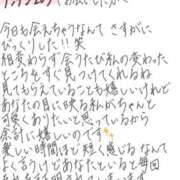 今日も会えちゃうなんて さすがに
びっくりした!! 笑
相変わらず会うたび私の変わった
ところをすぐ見つけてくれるね
見てもらえていることも嬉しいけれど
あなたの目に映る私がちゃんと
可愛くありたいと思っているから
余計に嬉しいのです✨
楽しい時間ほど短く感じるなんて
よく言うけどあなたといると毎回